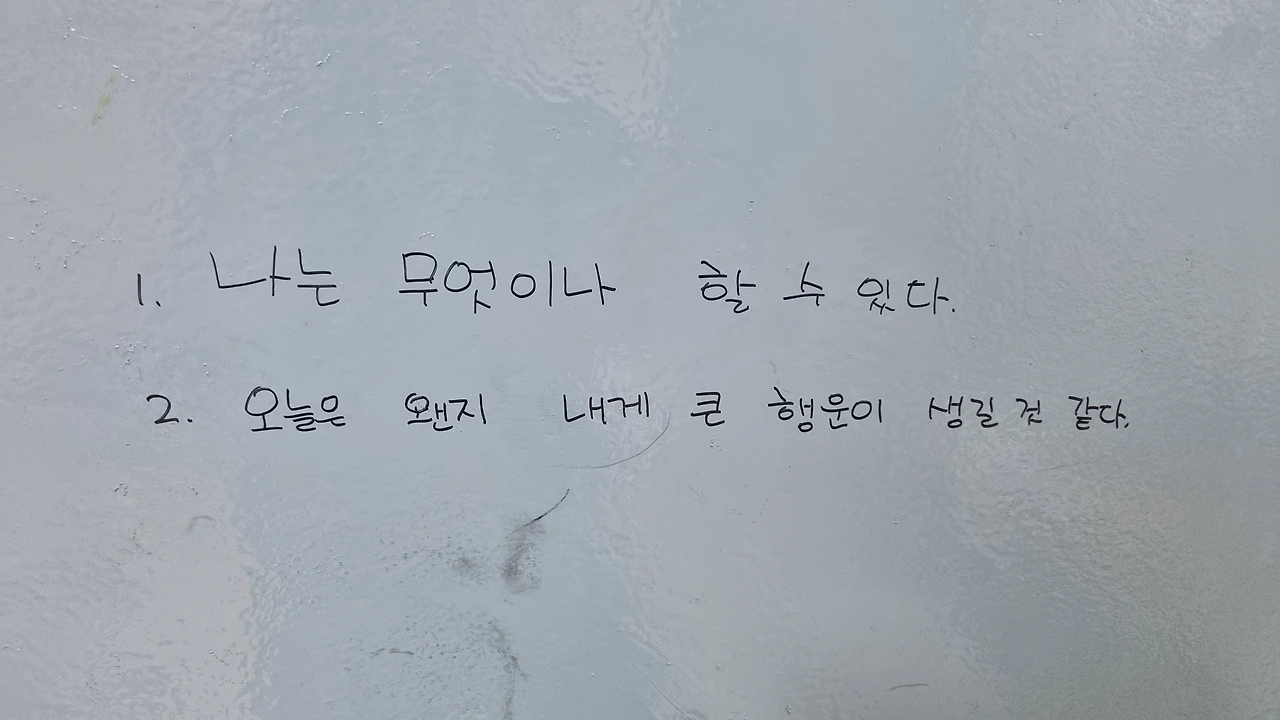 1. 나는 무엇이나 할 수 있다.
2. 오늘은 왠지 내게 큰 행운이 생길 것 같다.